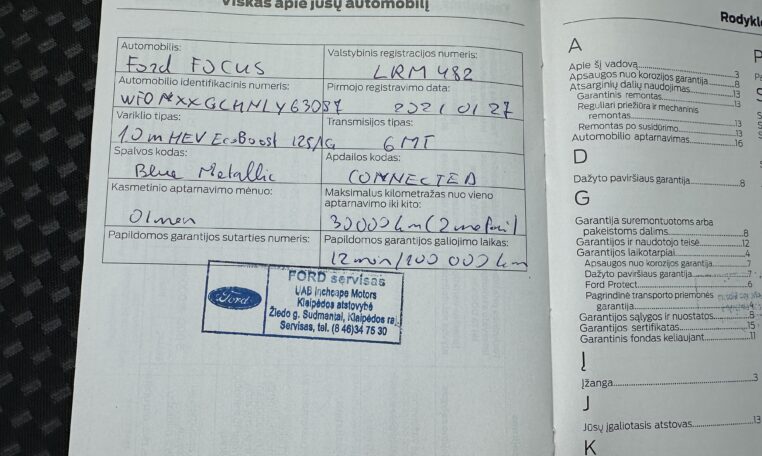 Viskas apie jūsų automobilį
Automobilis:
Ford FOCUS
Valstybinis registracijos numeris:
LRM 482
Automobilio identifikacinis numeris:
Pirmojo registravimo data:
2021 01 27
Variklio tipas:
1.0 mHEV EcoBoost 125
Transmisijos tipas:
6MT
Spalvos kodas:
Blue Metallic
Apdailos kodas:
CONNECTED
Kasmetinio aptarnavimo mėnuo:
01 men
Maksimalus kilometražas nuo vieno
aptarnavimo iki kito:
30000 km (2 metai)
Papildomos garantijos sutarties numeris:
Papildomos garantijos galiojimo laikas:
12 mėn/100 000 km
FORD servisas
UAB Inchcape Motors
Klaipėdos atstovybė
Žiedo g. Sudmantai, Klaipėdos raj.
Servisas, tel. (8 46)34 75 30
Ford
Rodykl
A
Apie šį vadovą 3
Apsaugos nuo korozijos garantija 8
Atsarginių dalių naudojimas 13
Garantinis remontas 13
Reguliari priežiūra ir mechaninis
remontas 13
Remontas po susidūrimo 13
Automobilio aptarnavimas 16
D
Dažyto paviršiaus garantija 8
G
Garantija suremontuotoms arba
pakeistoms dalims 8
Garantijos ir naudotojo teisė 12
Garantijos laikotarpiai 4
Apsaugos nuo korozijos garantija 7
Dažyto paviršiaus garantija 7
Ford Protect 6
Pagrindinė transporto priemonės
garantija 4
Garantijos sąlygos ir nuostatos 8
Garantijos sertifikatas 15
Garantinis fondas keliaujant 11
Į
Įžanga 3
J
Jūsų įgaliotasis atstovas 13
K